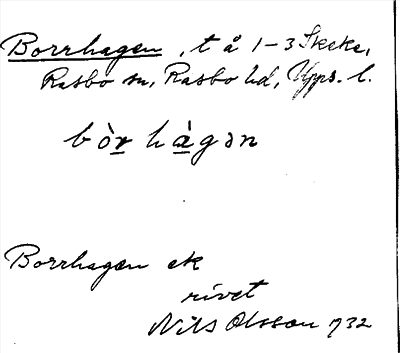 Borrhagen, t å 1-3 Skeke,
Rasbo sn, Rasbo hd, Upps. l.
bòr hàgən
Borrhagen ek
rivet
Nils Olsson 1732